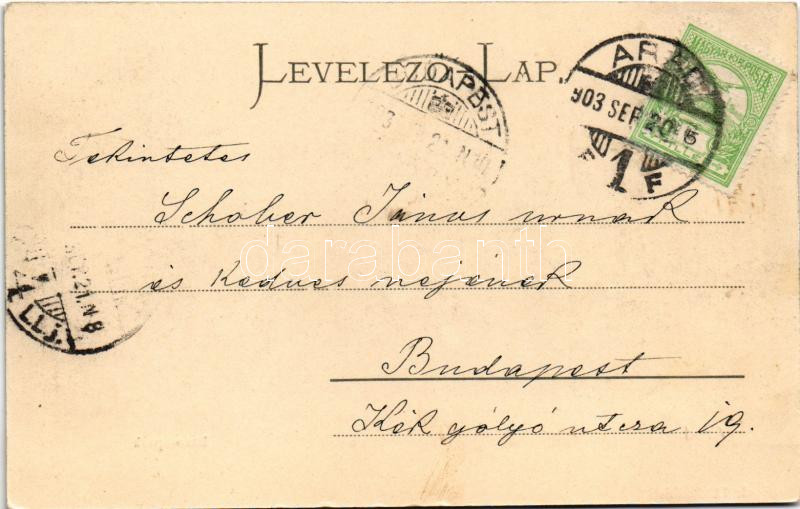 LEVELEZŐ LAP.
ARAD
903 SEP 20
1
F
MAGYAR KIR. POSTA
BUDAPEST
21. N
Tekintetes
Schober János urnak
és Kedves nejének
Budapest
Kék gólyó utcza 19.
21. N 8
darabanth